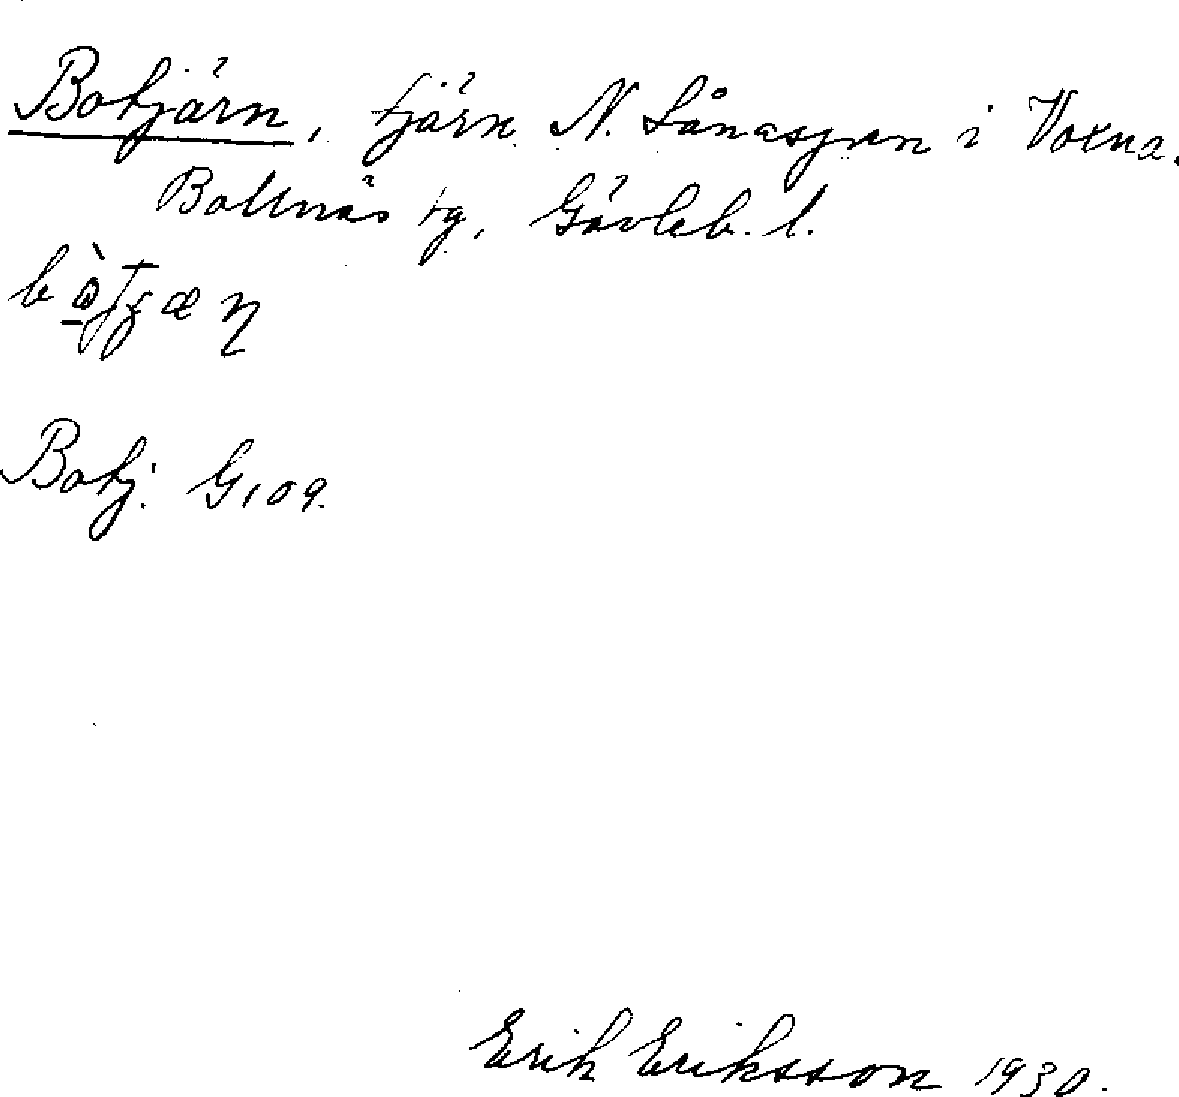 Botjärn, tjärn N. Lånasjön i Voxna.
Bollnäs tg, Gävleb. l.
Botj. G109.
Erik Eriksson 1930.